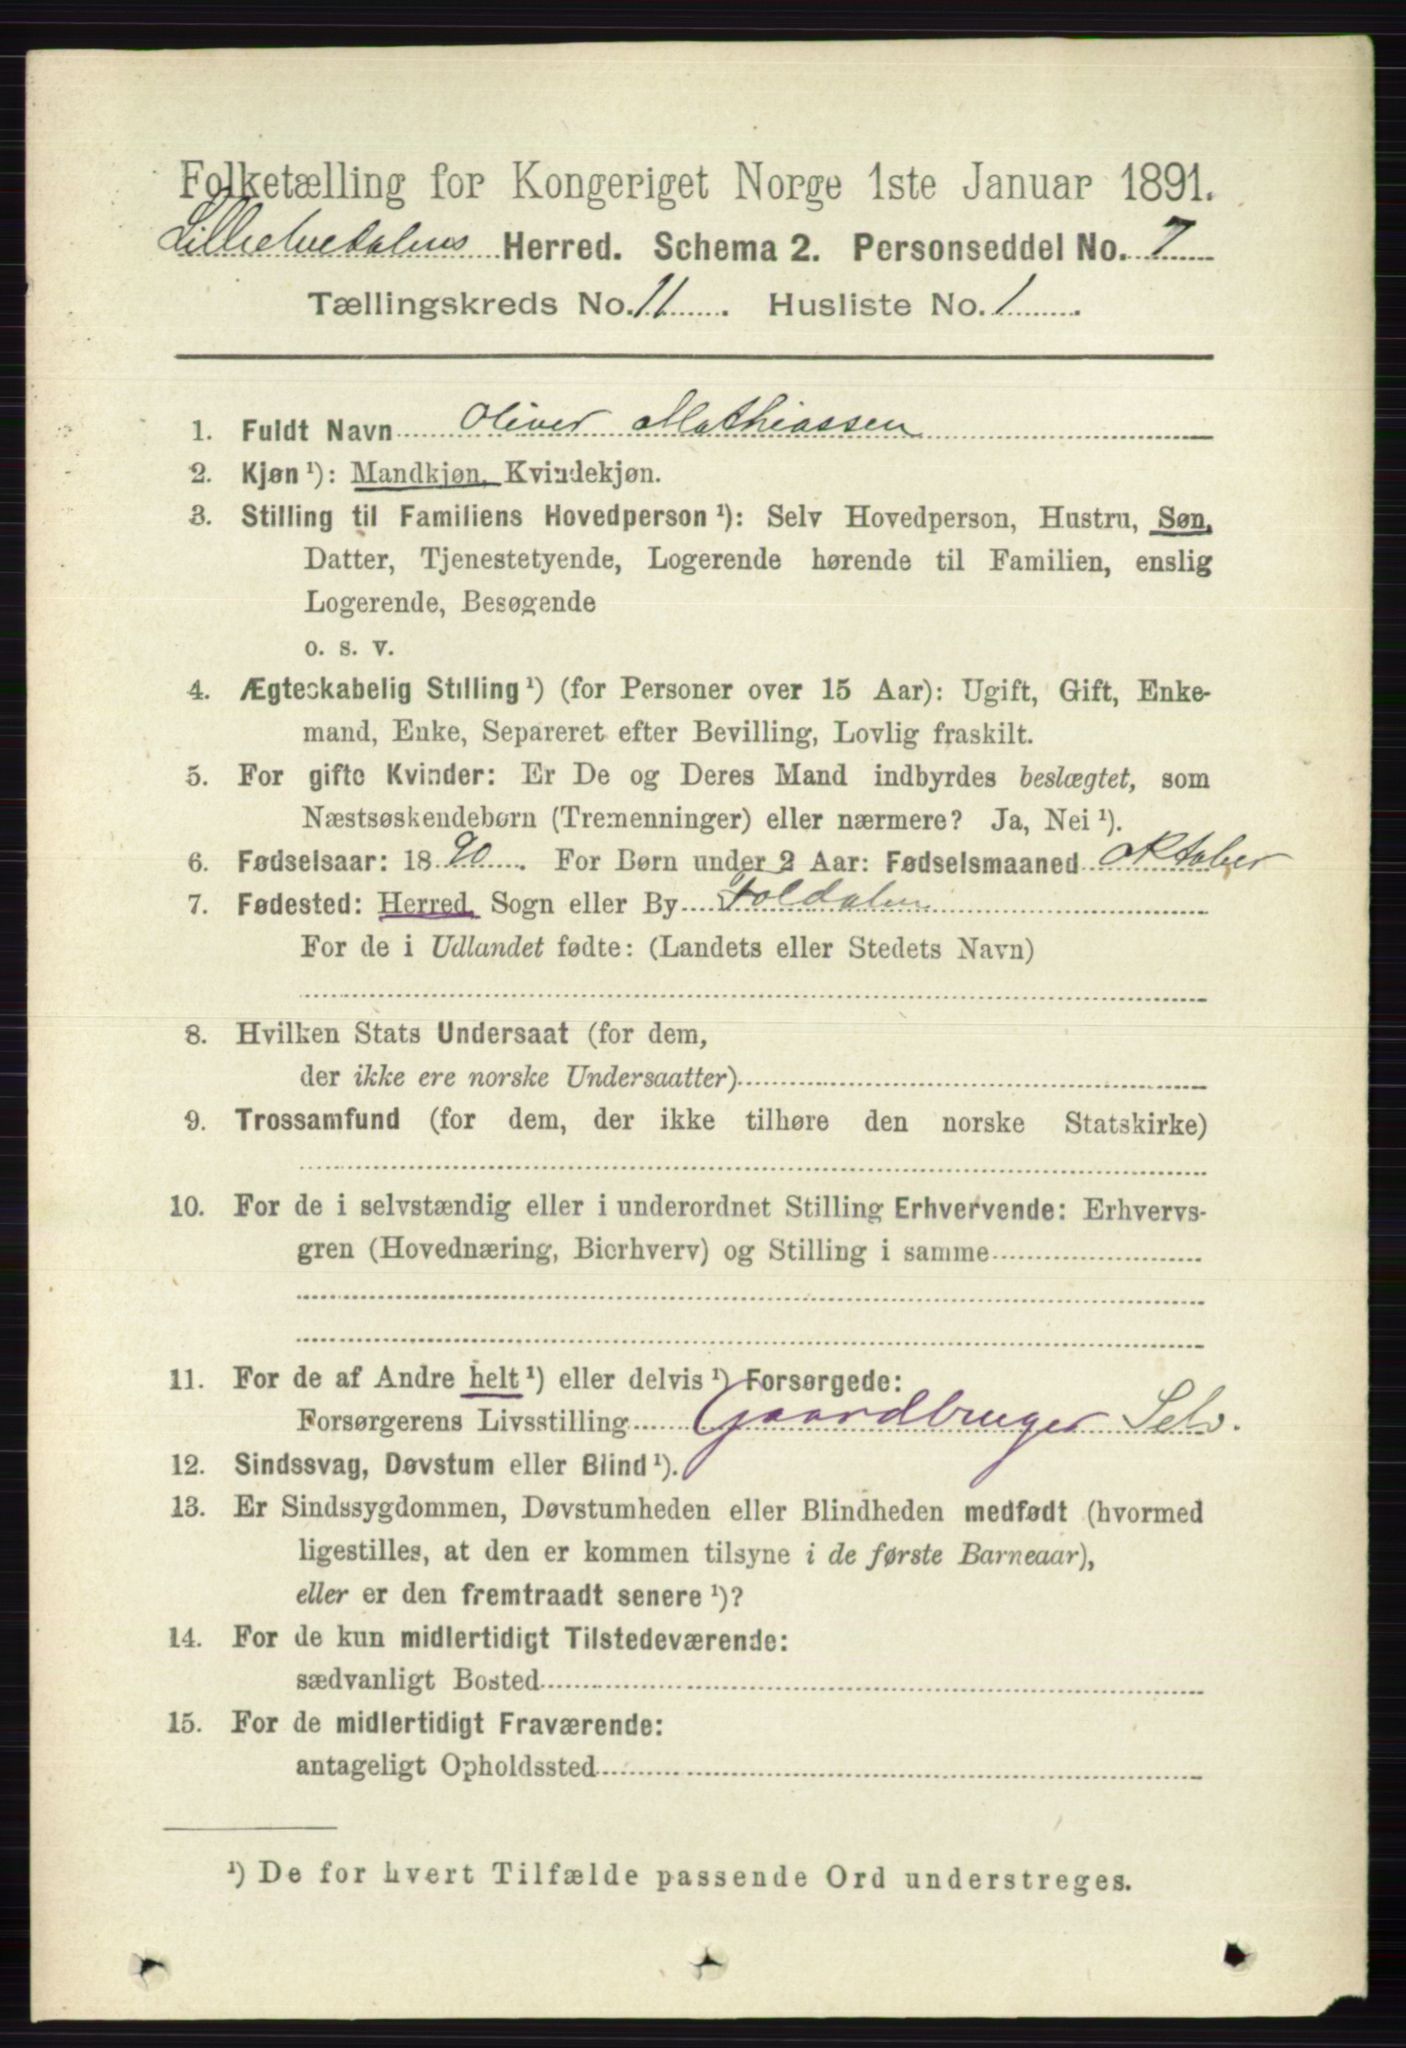 Folketælling for Kongeriget Norge 1ste Januar 1891.
Lilleelvedalens Herred. Schema 2. Personseddel No. 7
Tællingskreds No. 11. Husliste No. 1.
1. Fuldt Navn Oliver Mathiassen
2. Kjøn ¹): Mandkjøn, Kvindekjøn.
3. Stilling til Familiens Hovedperson ¹): Selv Hovedperson, Hustru, Søn,
Datter, Tjenestetyende, Logerende hørende til Familien, enslig
Logerende, Besøgende
o. s. v.
4. Ægteskabelig Stilling ¹) (for Personer over 15 Aar): Ugift, Gift, Enke-
mand, Enke, Separeret efter Bevilling, Lovlig fraskilt.
5. For gifte Kvinder: Er De og Deres Mand indbyrdes beslægtet, som
Næstsøskendebørn (Tremenninger) eller nærmere? Ja, Nei ¹).
6. Fødselsaar: 1890. For Børn under 2 Aar: Fødselsmaaned Oktober
7. Fødested: Herred, Sogn eller By Foldalen
For de i Udlandet fødte: (Landets eller Stedets Navn)
8. Hvilken Stats Undersaat (for dem,
der ikke ere norske Undersaatter)
9. Trossamfund (for dem, der ikke tilhøre den norske Statskirke)
10. For de i selvstændig eller i underordnet Stilling Erhvervende: Erhvervs-
gren (Hovednæring, Bierhverv) og Stilling i samme
11. For de af Andre helt ¹) eller delvis ¹) Forsørgede:
Forsørgerens Livsstilling Gaardbruger Selv.
12. Sindssvag, Døvstum eller Blind ¹).
13. Er Sindssygdommen, Døvstumheden eller Blindheden medfødt (hvormed
ligestilles, at den er kommen tilsyne i de første Barneaar),
eller er den fremtraadt senere ¹)?
14. For de kun midlertidigt Tilstedeværende:
sædvanligt Bosted
15. For de midlertidigt Fraværende:
antageligt Opholdssted
¹) De for hvert Tilfælde passende Ord understreges.